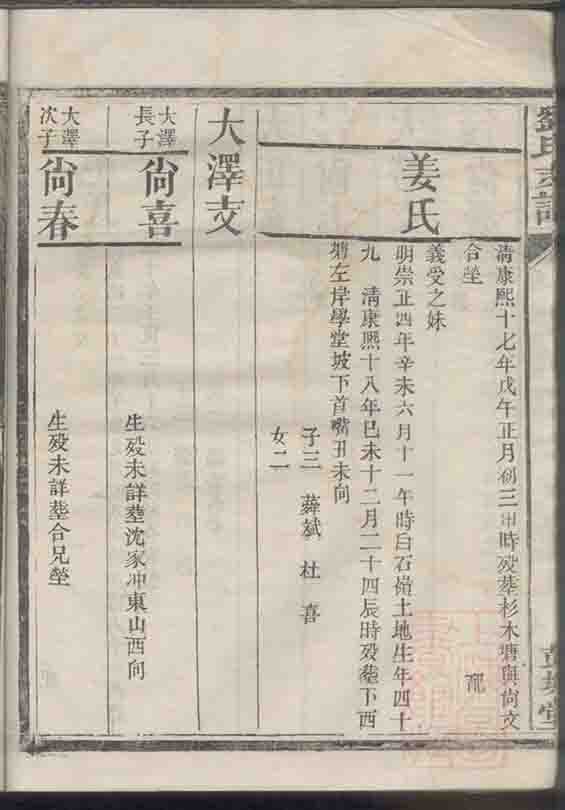 劉氏支譜
清康熙十七年戊午正月初三申時殁葬杉木塘與尙文
合塋
祔
姜氏
義受之妹
明崇正四年辛未六月十一午時白石嶺土地生年四十
九 清康熙十八年巳未十二月二十四辰時殁葬下西
塘左岸學堂坡下首嘴丑未向
子三 舜斌 杜 喜
女二
大澤支
大澤
長子
尙喜
生殁未詳葬沈家冲東山西向
大澤
次子
尙春
生殁未詳葬合兄塋